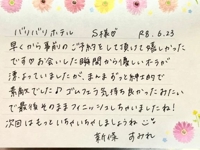 バリバリホテル S様♡ R8.6.23
早くから事前のご予約をして頂けて嬉しかった
です♡お会いした瞬間から優しいオーラが
漂よっていましたが、まんまずっと紳士的で
素敵でした♪ ゴルフより気持ち良かったみたい
で最後そのままフィニッシュしちゃいましたね!
次回はもっといちゃいちゃしましょうね
新保 すみれ